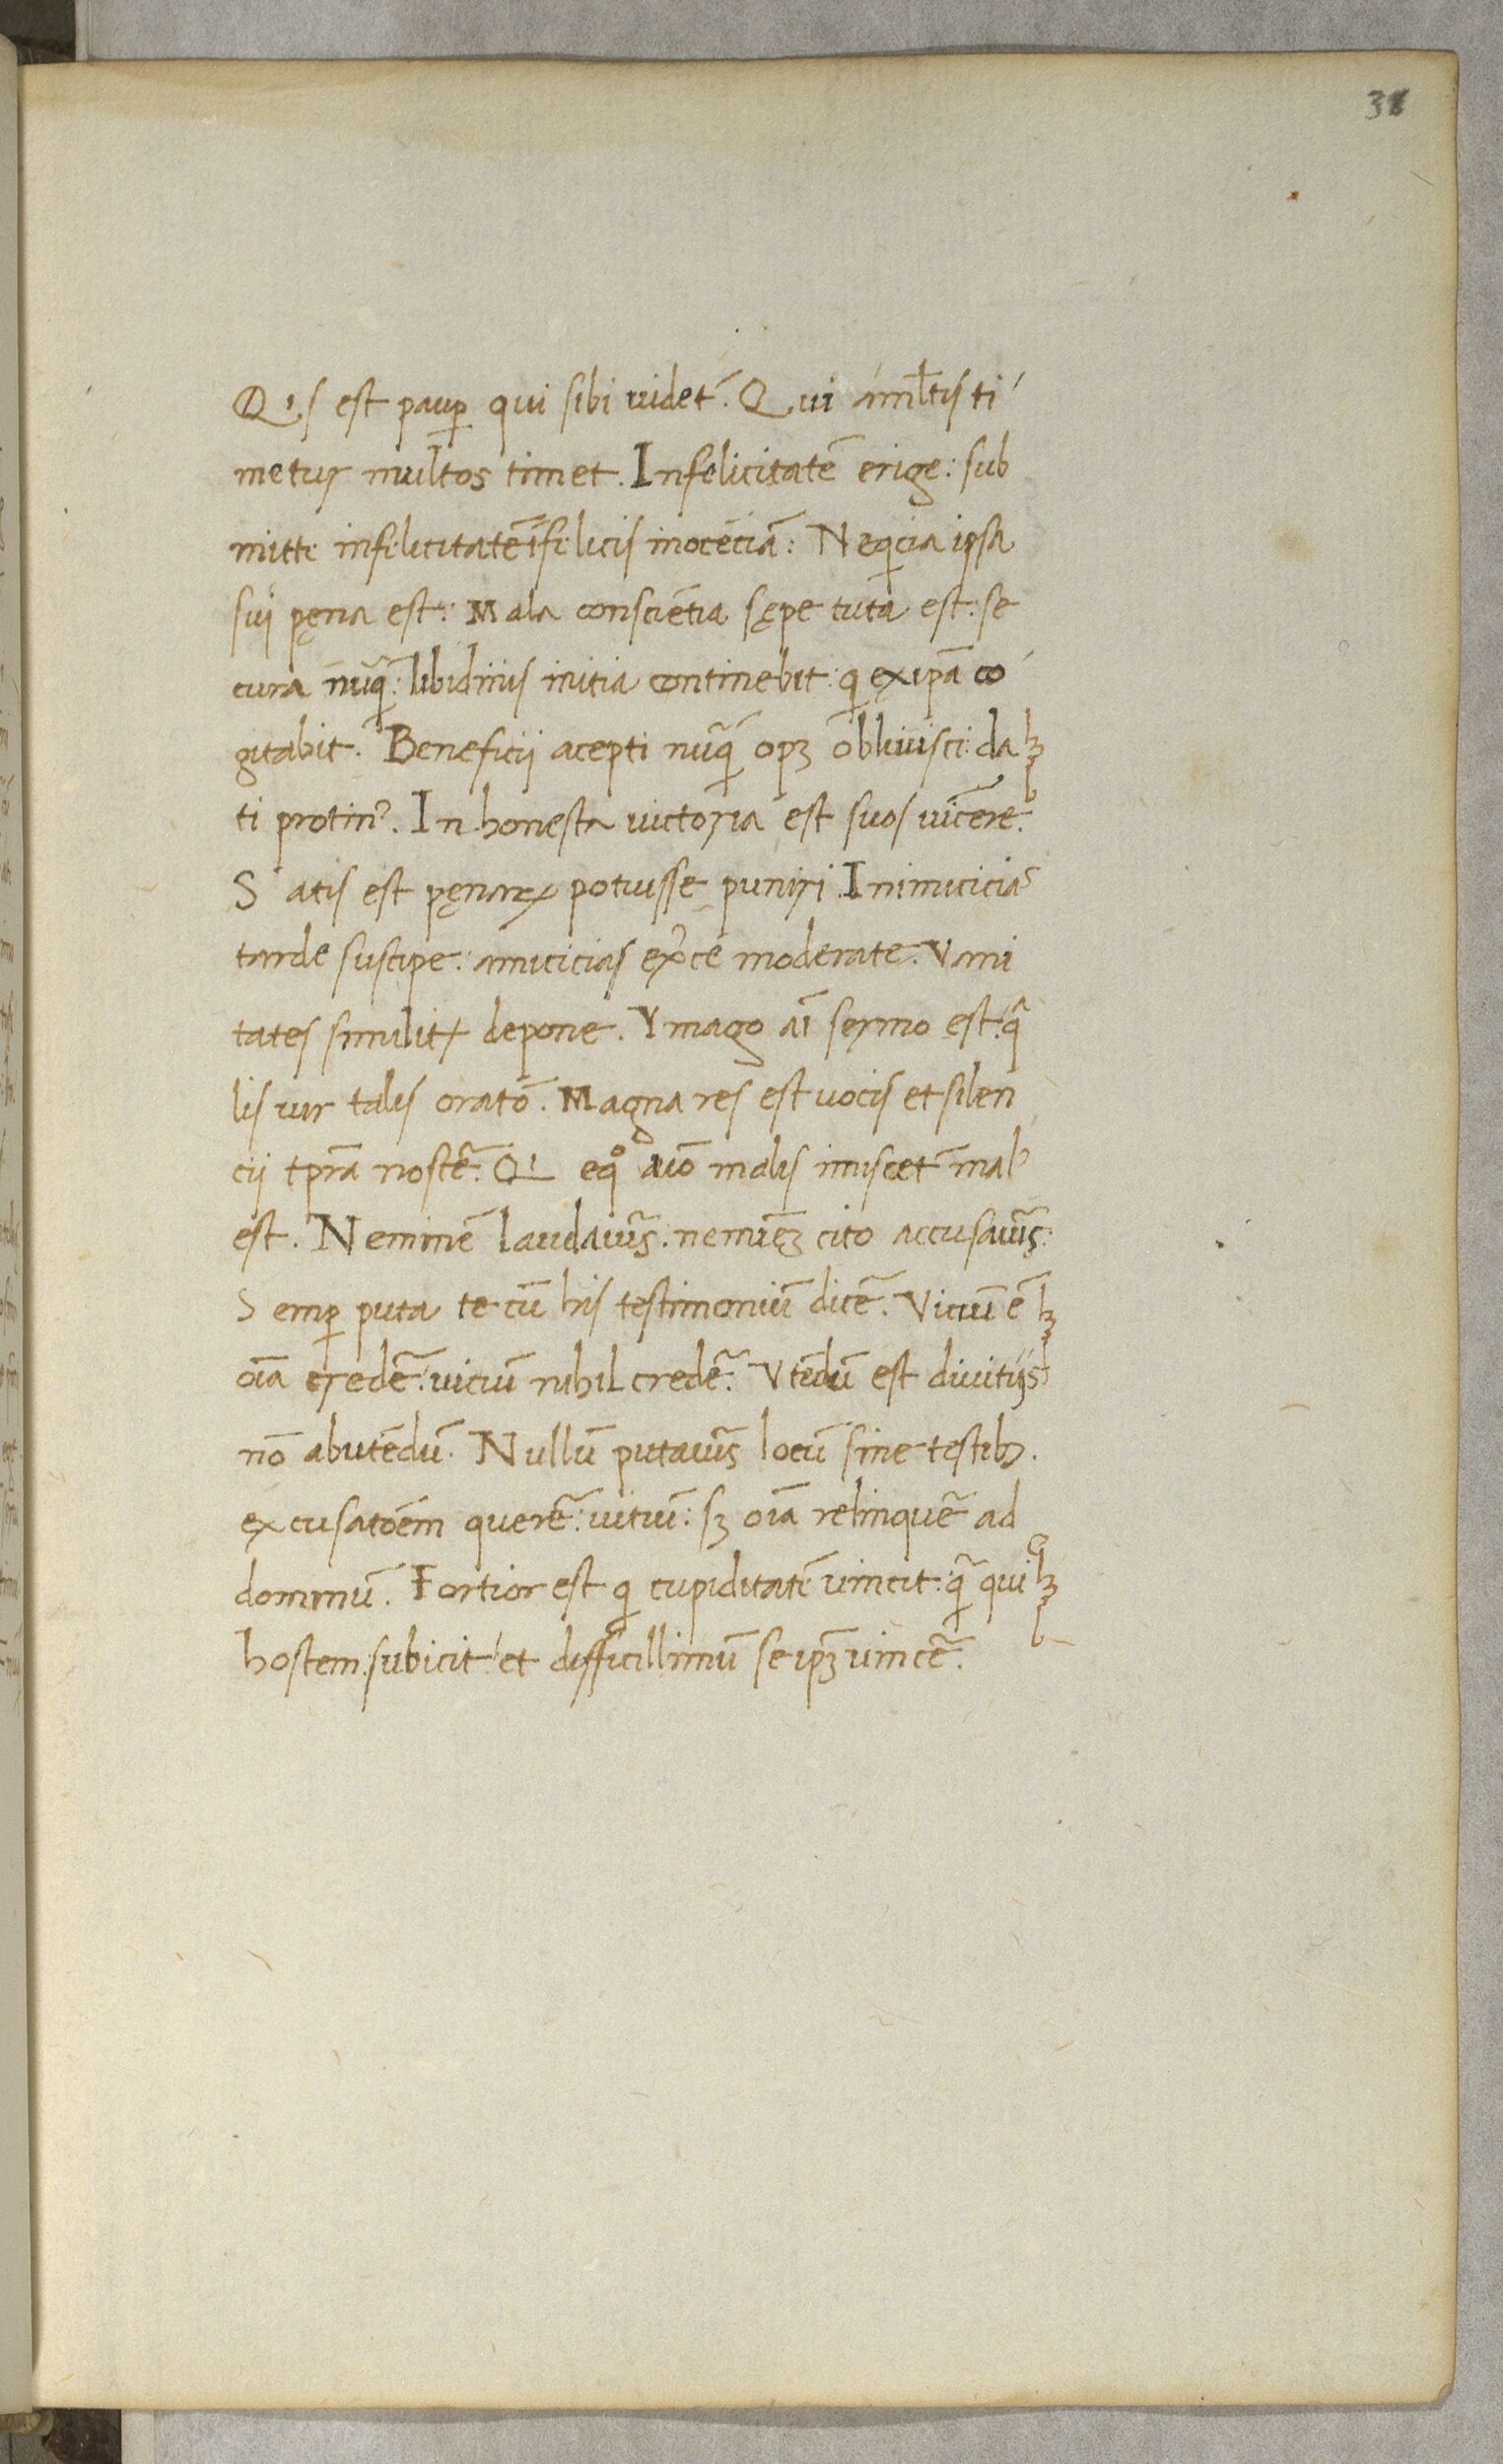 31
Q's est paup̱ qui sibi uidet᷑. Qui a ml̃tis ti
metur multos timet. Infelicitatẽ erige: sub
mitte infelicitatẽ ĩfelicis inocẽciã: Neqͥcia ipsa
sui pęna est: Mala consciẽtia sępe tuta est: se
cura nũqͣ: libidinis initia continebit: qͥ exipã co
gitabit. Beneficii acepti nũqͣ opꝫ obliuisci: da
ti protinꝰ. In honesta uictoria est suos uicere.
Satis est pęnaꝝ potuisse puniri. Inimicicias
tarde suscipe: amicicias ex̾ce moderate. Vani
tates similit̾ depone. Ymago aĩ sermo est: qͣ
lis uir talis oratõ. Magna res est uocis et silen
cii tp̃ra noscẽ. Qͥ eqͦ aĩo malis imiscet᷑ malꝰ
est. Neminẽ laudauĩs. neminẽꝫ cito accusauĩs:
Semp̱ puta te cũ his testimoniũ dicẽ. Viciũ ẽ
oĩa credẽ: uiciũ nihil credẽ. Vtẽdũ est diuitijs
nõ abutẽdũ. Nullũ putauĩs locũ sine testibꝫ.
excusatõem querẽ: uitiũ: sꝫ oĩa relinquẽ ad
dominũ. Fortior est qͥ cupiditatẽ uincit: qͣ qui
hostem subicit: et difficillimũ se ip̃ꝫ uincẽ.